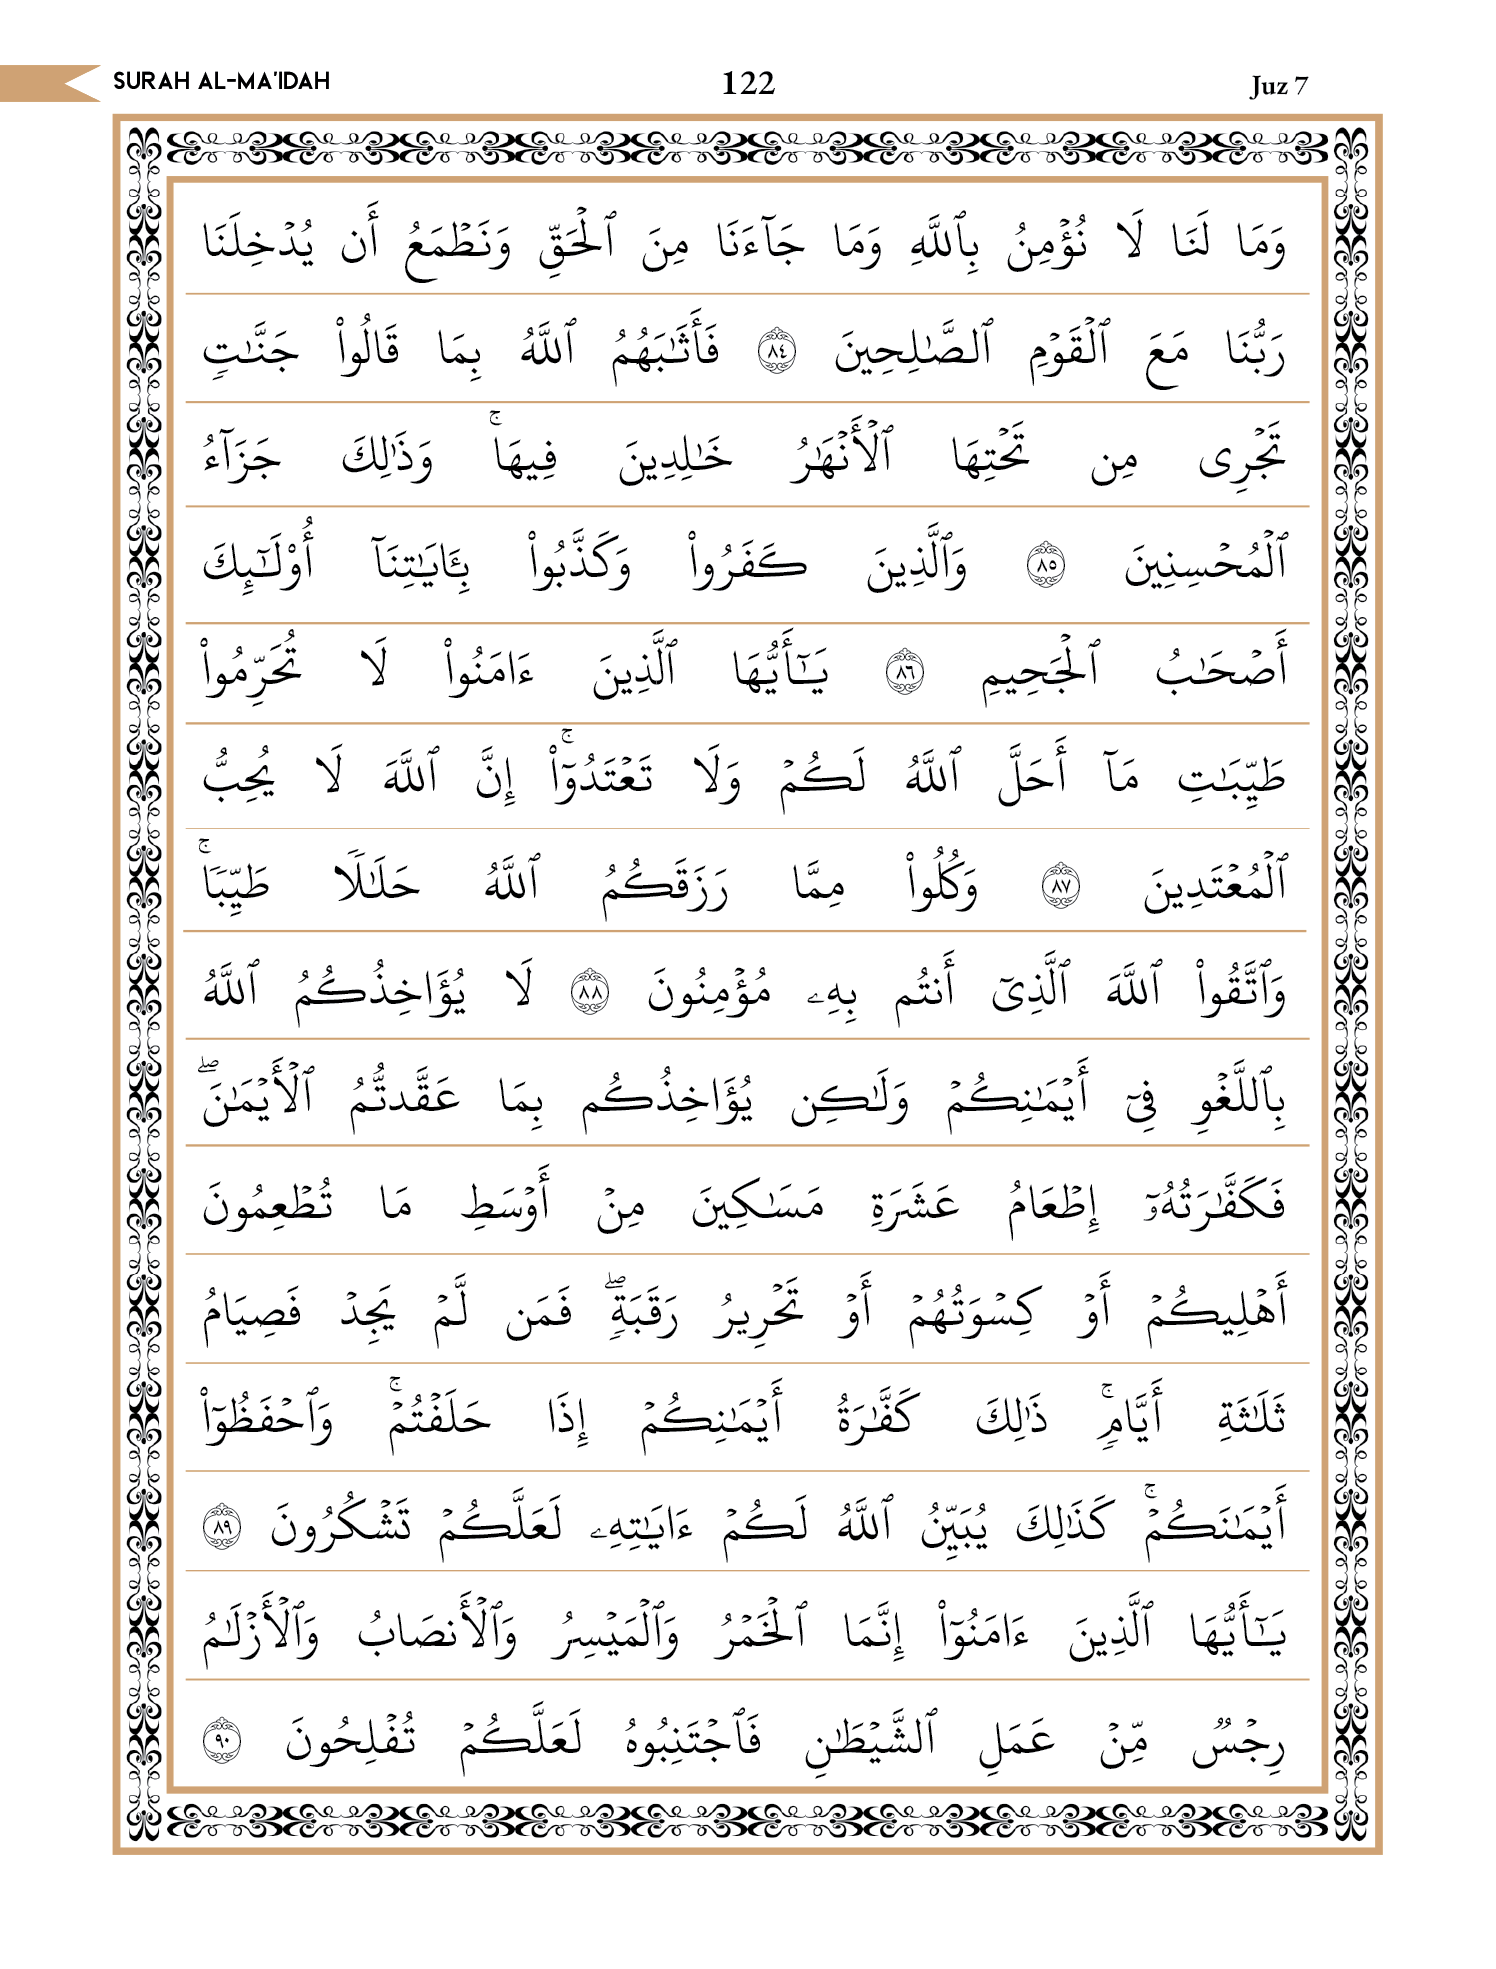 SURAH AL-MA'IDAH 122 Juz 7
وَمَا لَنَا لَا نُؤْمِنُ بِٱللَّهِ وَمَا جَآءَنَا مِنَ ٱلْحَقِّ وَنَطْمَعُ أَن يُدْخِلَنَا
رَبُّنَا مَعَ ٱلْقَوْمِ ٱلصَّـٰلِحِينَ ٨٤ فَأَثَـٰبَهُمُ ٱللَّهُ بِمَا قَالُوا۟ جَنَّـٰتٍ
تَجْرِى مِن تَحْتِهَا ٱلْأَنْهَـٰرُ خَـٰلِدِينَ فِيهَا ۚ وَذَٰلِكَ جَزَآءُ
ٱلْمُحْسِنِينَ ٨٥ وَٱلَّذِينَ كَفَرُوا۟ وَكَذَّبُوا۟ بِـَٔايَـٰتِنَآ أُو۟لَـٰٓئِكَ
أَصْحَـٰبُ ٱلْجَحِيمِ ٨٦ يَـٰٓأَيُّهَا ٱلَّذِينَ ءَامَنُوا۟ لَا تُحَرِّمُوا۟
طَيِّبَـٰتِ مَآ أَحَلَّ ٱللَّهُ لَكُمْ وَلَا تَعْتَدُوٓا۟ ۚ إِنَّ ٱللَّهَ لَا يُحِبُّ
ٱلْمُعْتَدِينَ ٨٧ وَكُلُوا۟ مِمَّا رَزَقَكُمُ ٱللَّهُ حَلَـٰلًا طَيِّبًا ۚ
وَٱتَّقُوا۟ ٱللَّهَ ٱلَّذِىٓ أَنتُم بِهِۦ مُؤْمِنُونَ ٨٨ لَا يُؤَاخِذُكُمُ ٱللَّهُ
بِٱللَّغْوِ فِىٓ أَيْمَـٰنِكُمْ وَلَـٰكِن يُؤَاخِذُكُم بِمَا عَقَّدتُّمُ ٱلْأَيْمَـٰنَ ۖ
فَكَفَّـٰرَتُهُۥٓ إِطْعَامُ عَشَرَةِ مَسَـٰكِينَ مِنْ أَوْسَطِ مَا تُطْعِمُونَ
أَهْلِيكُمْ أَوْ كِسْوَتُهُمْ أَوْ تَحْرِيرُ رَقَبَةٍ ۖ فَمَن لَّمْ يَجِدْ فَصِيَامُ
ثَلَـٰثَةِ أَيَّامٍ ۚ ذَٰلِكَ كَفَّـٰرَةُ أَيْمَـٰنِكُمْ إِذَا حَلَفْتُمْ ۚ وَٱحْفَظُوٓا۟
أَيْمَـٰنَكُمْ ۚ كَذَٰلِكَ يُبَيِّنُ ٱللَّهُ لَكُمْ ءَايَـٰتِهِۦ لَعَلَّكُمْ تَشْكُرُونَ ٨٩
يَـٰٓأَيُّهَا ٱلَّذِينَ ءَامَنُوٓا۟ إِنَّمَا ٱلْخَمْرُ وَٱلْمَيْسِرُ وَٱلْأَنصَابُ وَٱلْأَزْلَـٰمُ
رِجْسٌ مِّنْ عَمَلِ ٱلشَّيْطَـٰنِ فَٱجْتَنِبُوهُ لَعَلَّكُمْ تُفْلِحُونَ ٩٠